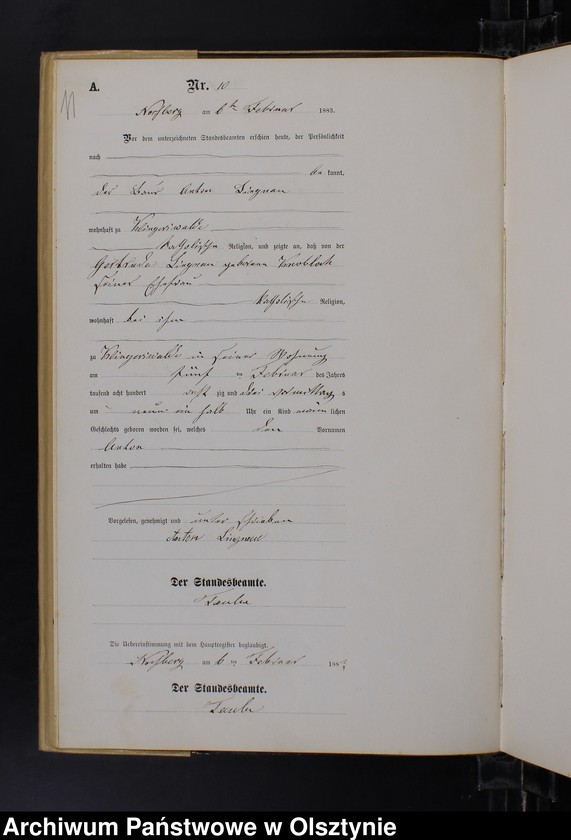 11
A.
Nr. 10
am 6ten Februar 1883.
Vor dem unterzeichneten Standesbeamten erschien heute, der Persönlichkeit
nach
be kannt,
der Bauer Anton Lingnau
wohnhaft zu Klingerswalde
katholischer Religion, und zeigte an, daß von der
Gertrude Lingnau geborene Knobloch
seiner Ehefrau
katholischer Religion,
wohnhaft bei ihm
zu Klingerswalde in seiner Wohnung
am fünf ten Februar des Jahres
tausend acht hundert acht zig und drei Vormittag s
um neun ein halb Uhr ein Kind männ lichen
Geschlechts geboren worden sei, welches den Vornamen
Anton
erhalten habe
Vorgelesen, genehmigt und unter schrieben
Anton Lingnau
Der Standesbeamte.
Die Uebereinstimmung mit dem Hauptregister beglaubigt.
am 6 ten Februar 1883
Der Standesbeamte.
Archiwum Państwowe w Olsztynie